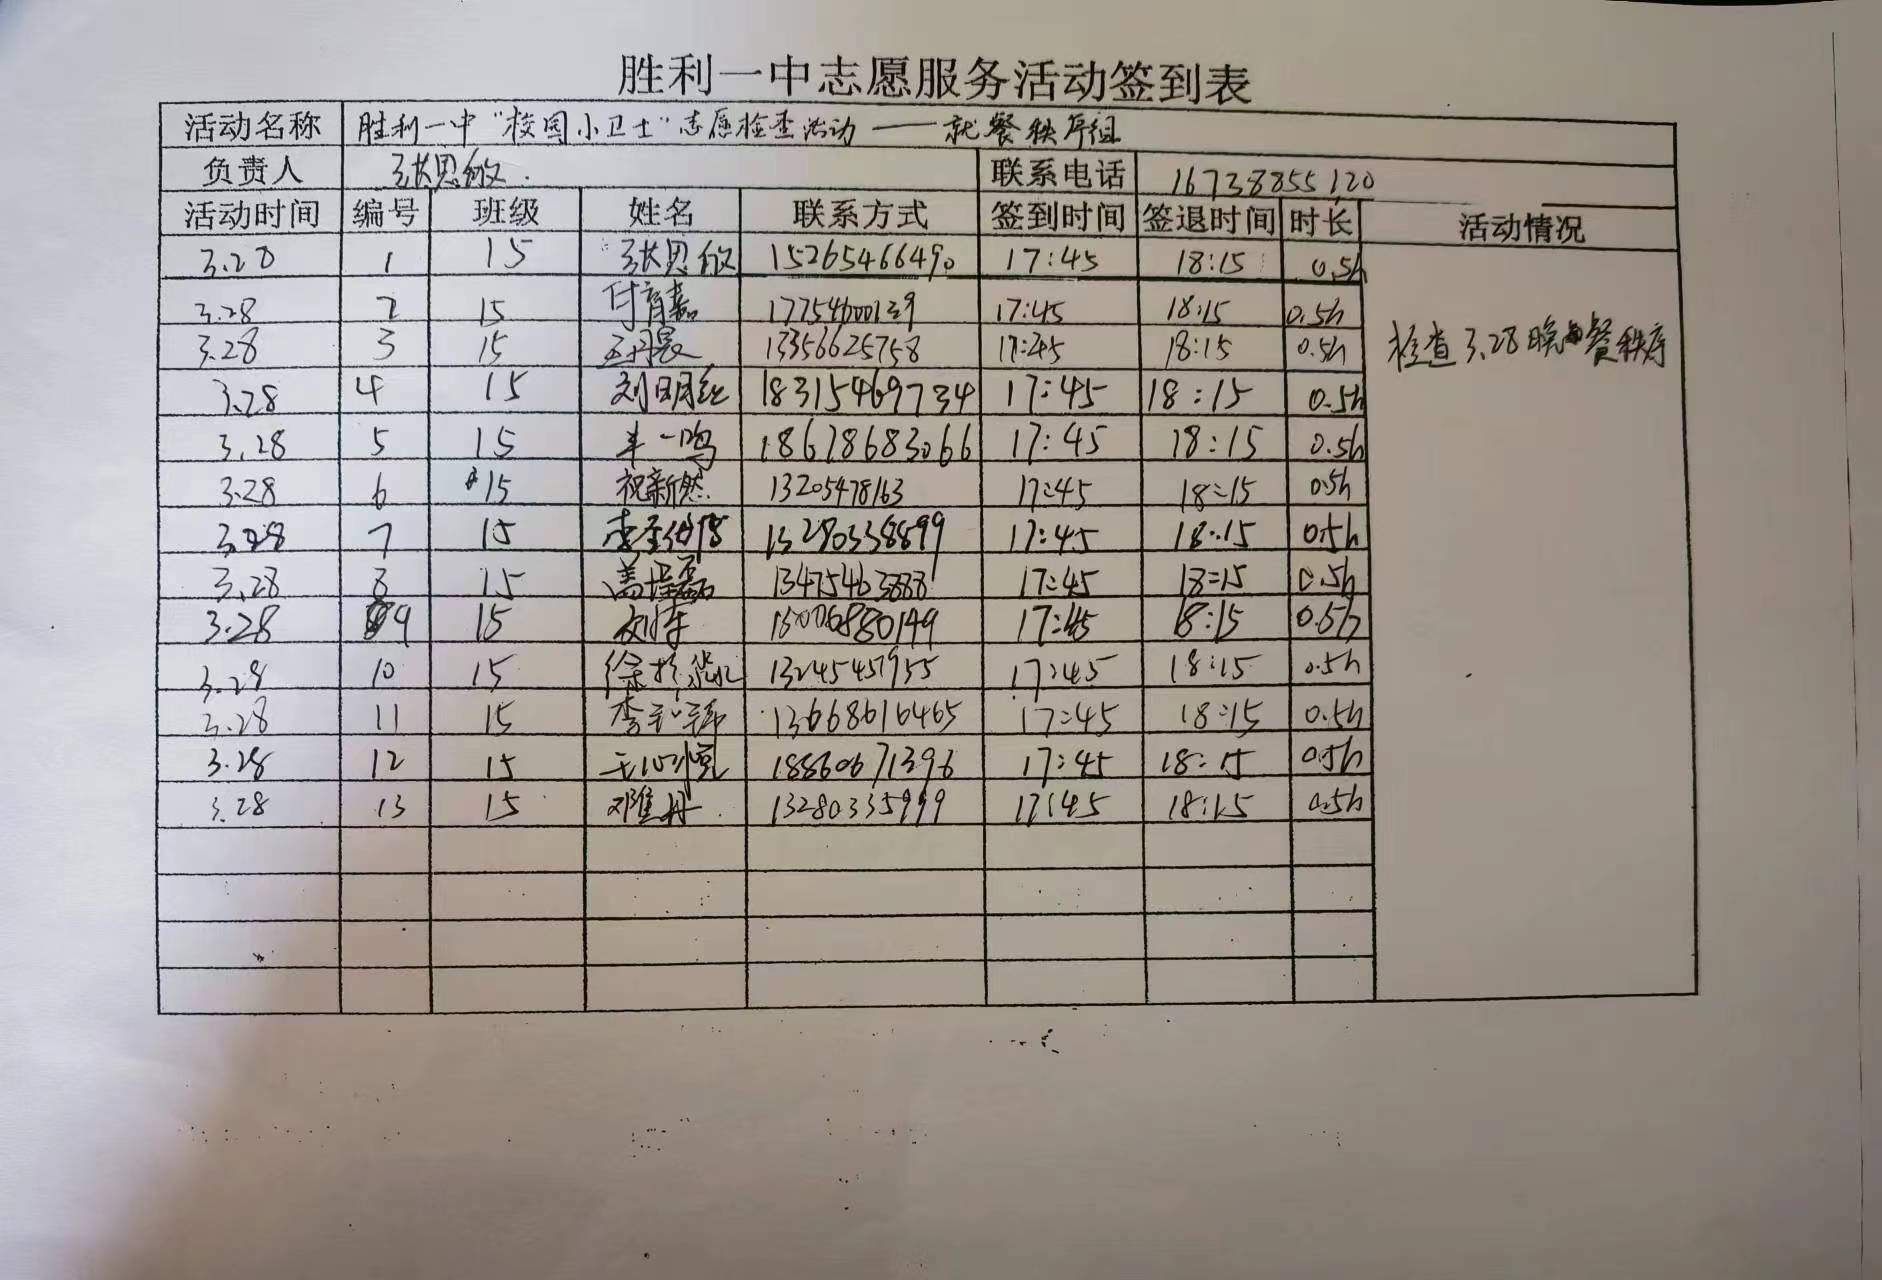 胜利一中志愿服务活动签到表
活动名称 胜利一中“校园小卫士”志愿检查活动——就餐秩序组
负责人 张思敏 联系电话 16738855120
活动时间 编号 班级 姓名 联系方式 签到时间 签退时间 时长 活动情况
3.28 1 15 张思敏 15265466490 17:45 18:15 0.5h
3.28 2 15 付育嘉 17754600139 17:45 18:15 0.5h
3.28 3 15 13356625758 17:45 18:15 0.5h 检查3.28晚餐秩序
3.28 4 15 刘明 18315469734 17:45 18:15 0.5h
3.28 5 15 一鸣 18678683066 17:45 18:15 0.5h
3.28 6 15 祝新然 13205478163 17:45 18:15 0.5h
3.28 7 15 李 17:45 18:15 0.5h
3.28 8 15 盖 磊 13475463888 17:45 18:15 0.5h
3.28 9 15 17:45 18:15 0.5h
3.28 10 15 徐 17:45 18:15 0.5h
3.28 11 15 李 13668616465 17:45 18:15 0.5h
3.28 12 15 18860671396 17:45 18:15 0.5h
3.28 13 15 邓 13280335999 17:45 18:15 0.5h